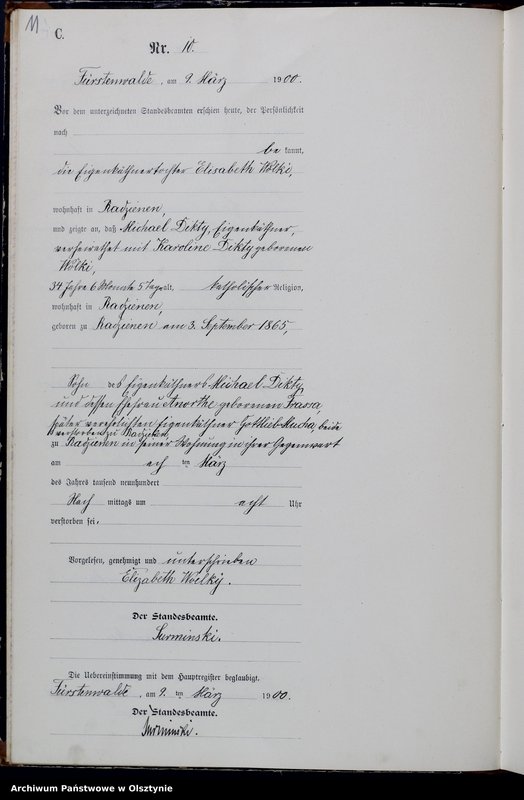 11
C.
Nr. 10.
Fürstenwalde, am 9. März 1900.
Vor dem unterzeichneten Standesbeamten erschien heute, der Persönlichkeit
nach
be kannt,
die Eigenkäthnertochter Elisabeth Wölki,
wohnhaft in Radzienen,
und zeigte an, daß Michael Dikty, Eigenkäthner,
verheirathet mit Karoline Dikty geborenen
Wölki,
34 Jahre 6 Monate 5 Tage alt, katholischer Religion,
wohnhaft in Radzienen,
geboren zu Radzienen am 3. September 1865,
Sohn des Eigenkäthners Michael Dikty,
und dessen Ehefrau Anorthe geborenen Prassa,
später verehelichten Eigenkäthner Gottlieb Mucha, beide
verstorben zu Radzienen,
zu Radzienen in seiner Wohnung in ihrer Gegenwart
am ach ten März
des Jahres tausend neunhundert
Nach mittags um acht Uhr
verstorben sei.
Vorgelesen, genehmigt und unterschrieben
Elizabeth Woelky.
Der Standesbeamte.
Surminski.
Die Uebereinstimmung mit dem Hauptregister beglaubigt.
Fürstenwalde, am 9. ten März 1900.
Der Standesbeamte.
Surminski.
Archiwum Państwowe w Olsztynie